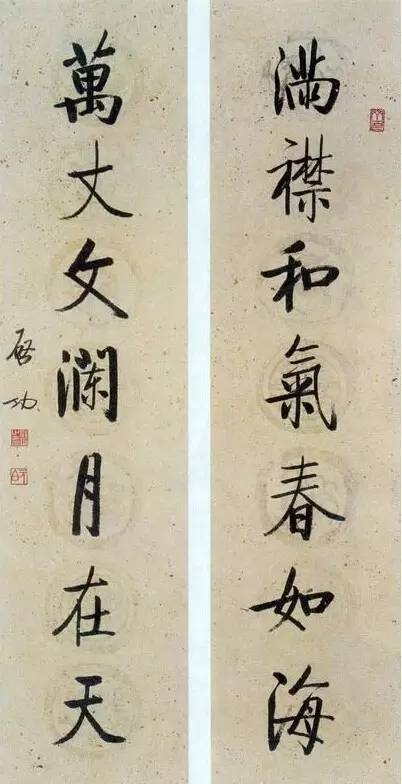 満襟和氣春如海
萬丈文瀾月在天
啓功